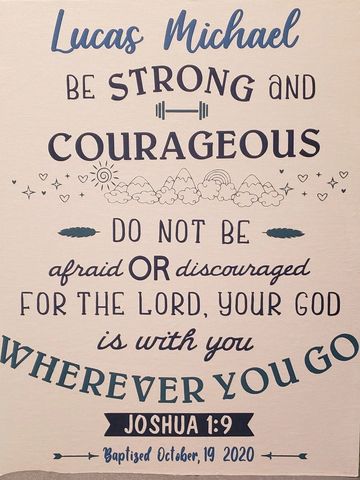 Lucas Michael
BE STRONG aND
COURAGEOUS
DO NOT BE
afraid OR discouraged
FOR THE LORD, YOUR GOD
is with you
WHEREVER YOU GO
JOSHUA 1:9
Baptized October, 19 2020